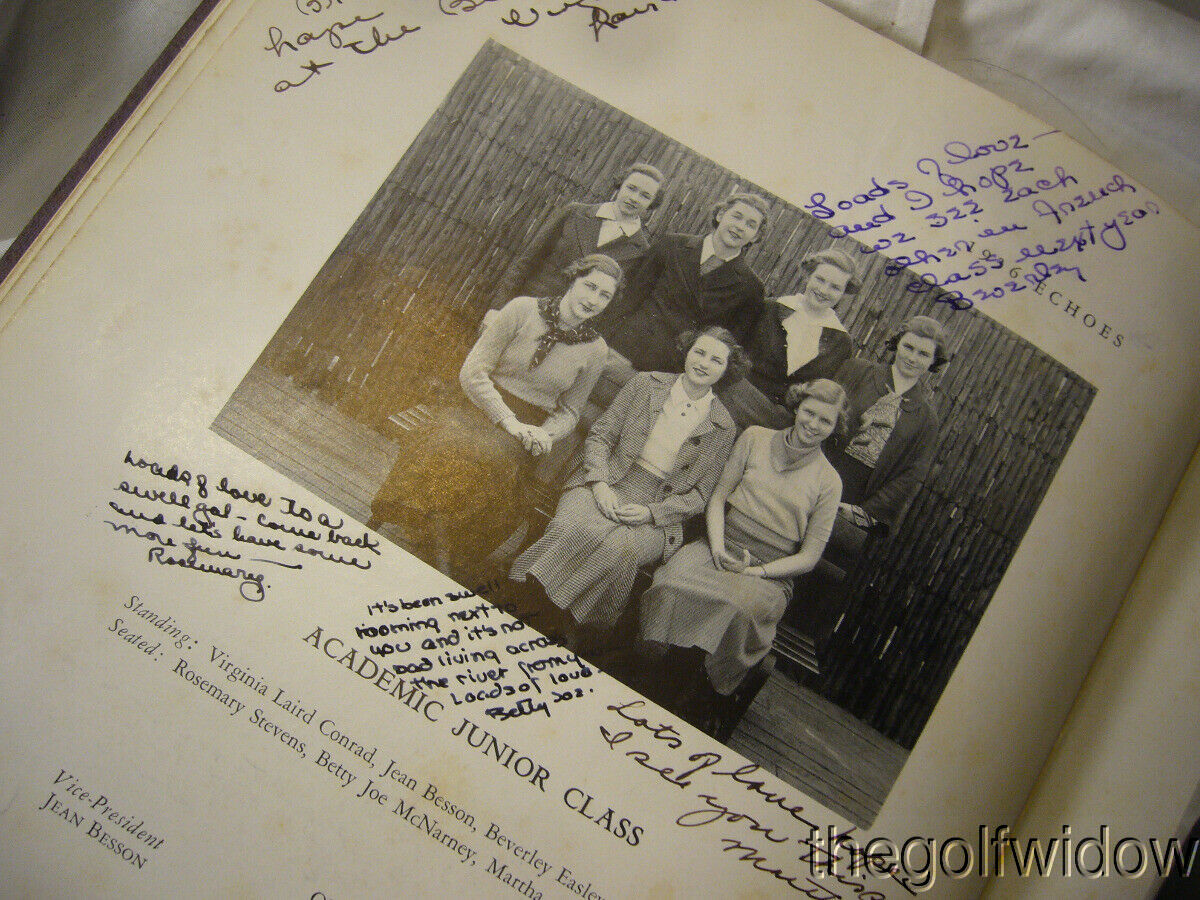 hope
at the
Loads of love —
and I hope
we see each
other in French
class next year
Beverley
ECHOES
Loads of love to a
swell gal - come back
and let's have some
more fun —
Rosemary.
It's been swell
rooming next to
you and it's not
bad living across
the river from you
Loads of love
Betty Joe.
Lots of love, hope
I see you this
ACADEMIC JUNIOR CLASS
Standing: Virginia Laird Conrad, Jean Besson, Beverley Easley
Seated: Rosemary Stevens, Betty Joe McNarney, Martha
Vice-President
JEAN BESSON
thegolfwidow